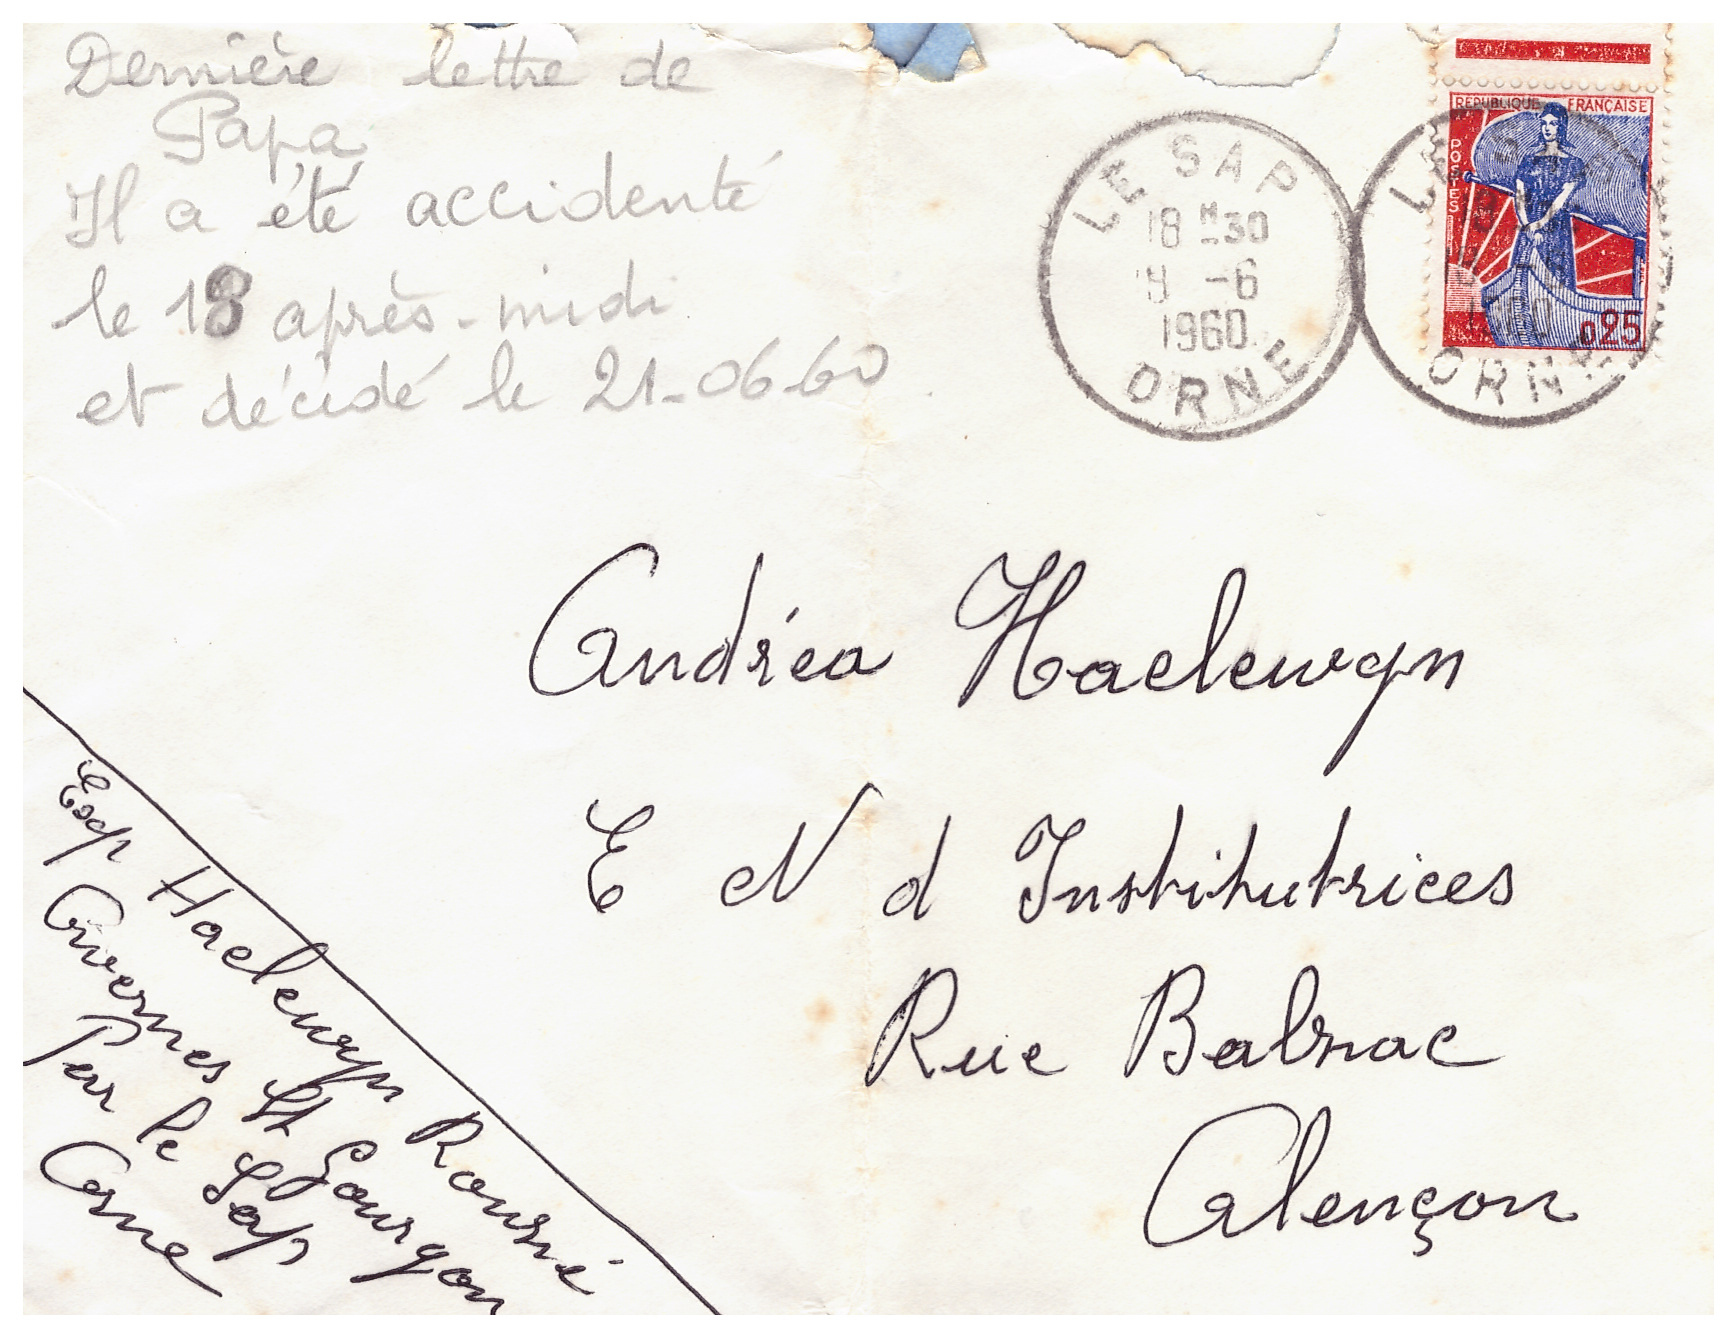 Dernière lettre de
Papa
Il a été accidenté
le 18 après-midi
et décédé le 21-06-60
LE SAP
18 H 30
-6
1960
ORNE
RÉPUBLIQUE FRANÇAISE
POSTES
0,25
ORNE
Andréa Haelewyn
E N d Institutrices
Rue Balzac
Alençon
Exp Haelewyn Roussé
Avernes St Gourgon
Par le Sap
Orne